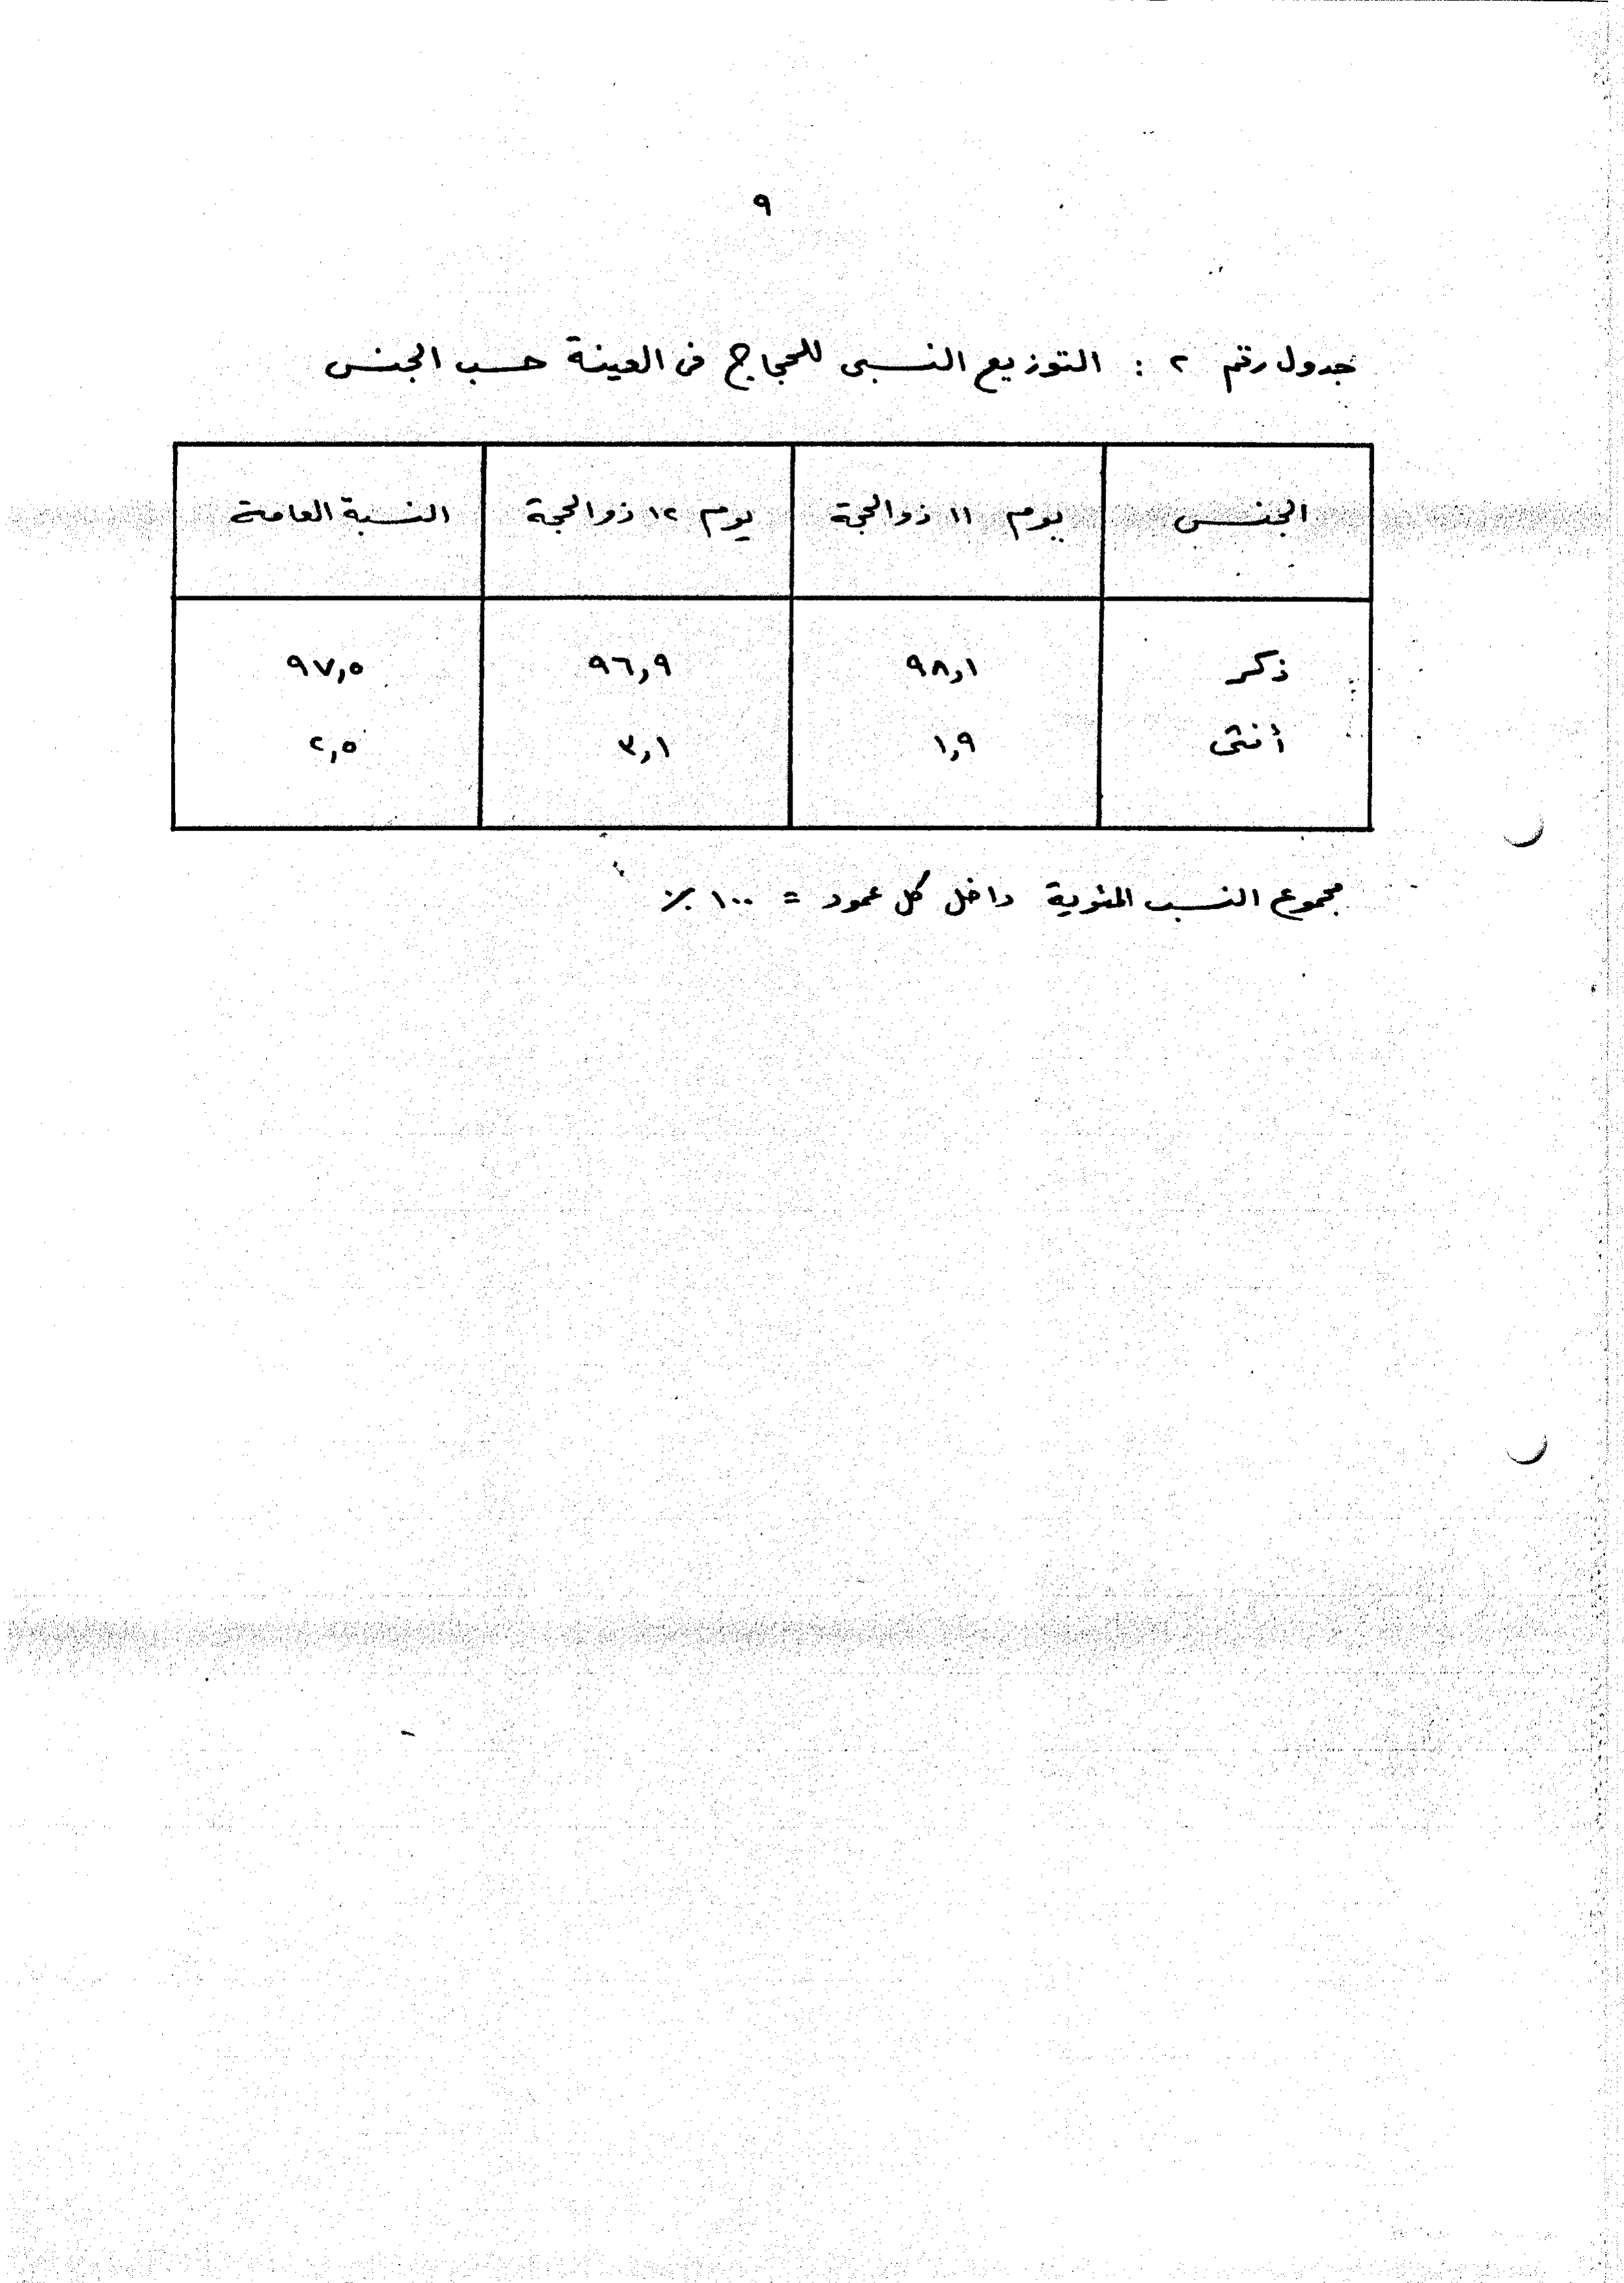 ٩
جدول رقم ٢ : التوزيع النسبى للحجاج فى العينة حسب الجنس
الجنس يوم ١١ ذوالحجة يوم ١٢ ذوالحجة النسبة العامة
ذكر ٩٨,١ ٩٦,٩ ٩٧,٥
أنثى ١,٩ ٣,١ ٢,٥
مجموع النسب المئوية داخل كل عمود = ١٠٠ ٪